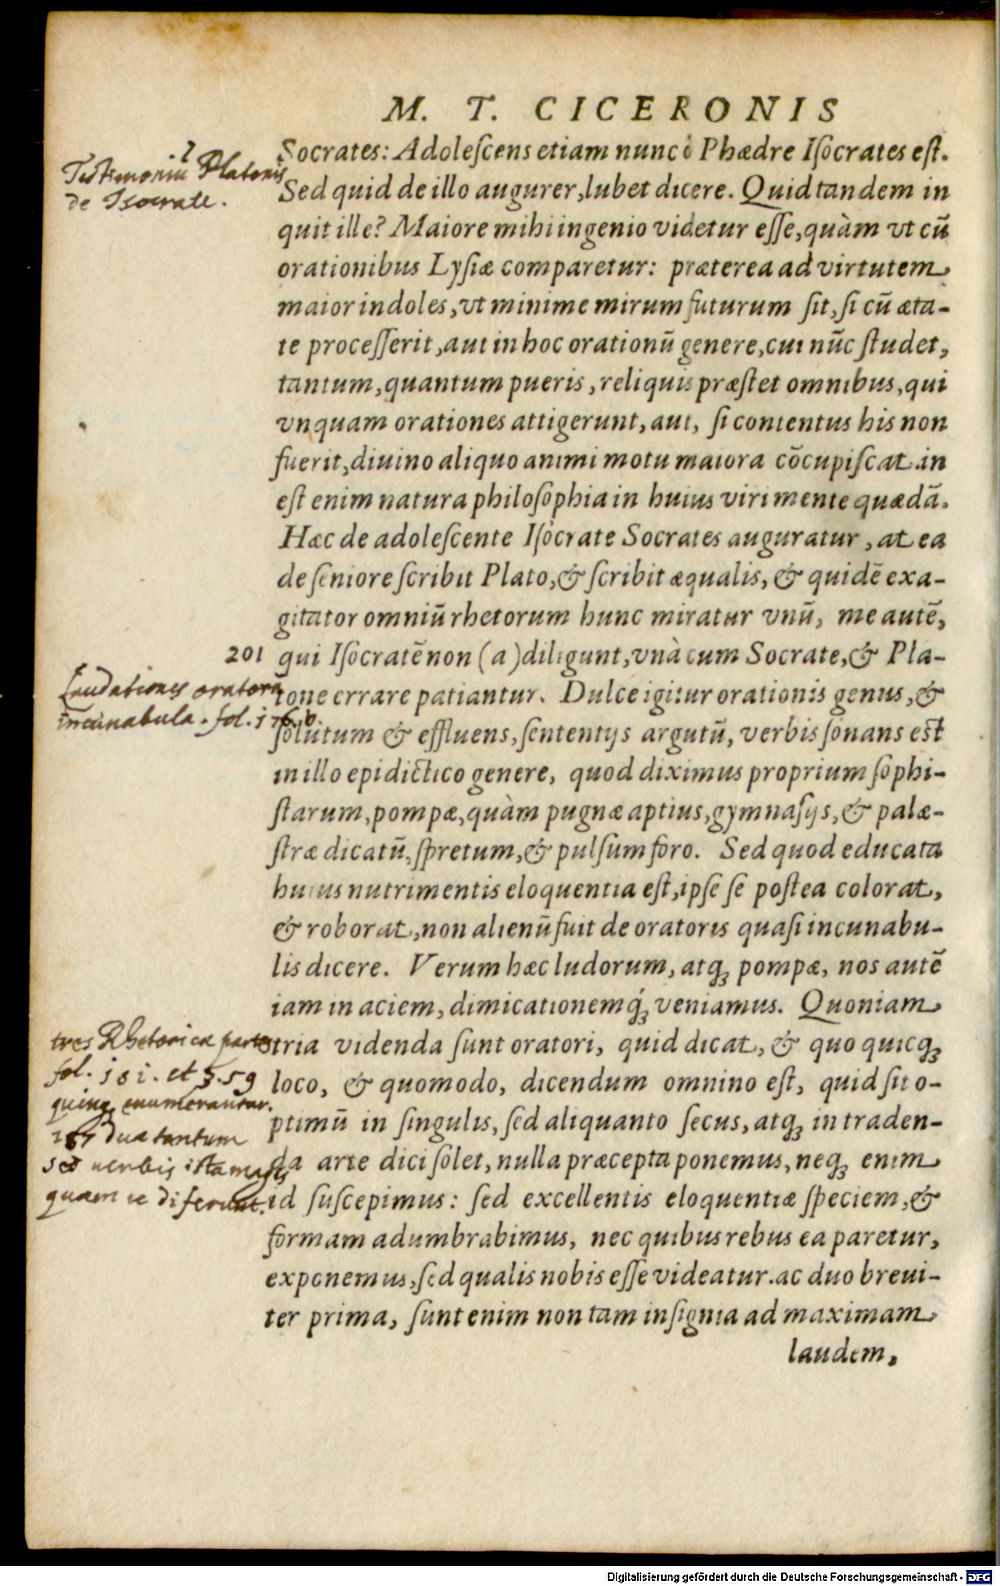 M. T. CICERONIS
Socrates: Adolescens etiam nunc ò Phædre Isocrates est.
Sed quid de illo augurer, lubet dicere. Quid tandem in
quit ille? Maiore mihi ingenio videtur esse, quàm vt cū
orationibus Lysiæ comparetur: præterea ad virtutem
maior indoles, vt minime mirum futurum sit, si cū æta-
te processerit, aut in hoc orationū genere, cui nūc studet,
tantum, quantum pueris, reliquis præstet omnibus, qui
vnquam orationes attigerunt, aut, si contentus his non
fuerit, diuino aliquo animi motu maiora cōcupiscat. in
est enim natura philosophia in huius viri mente quædā.
Hæc de adolescente Isocrate Socrates auguratur, at ea
de seniore scribit Plato, & scribit æqualis, & quidē exa-
gitator omniū rhetorum hunc miratur vnū, me autē,
qui Isocratē non (a) diligunt, vnà cum Socrate, & Pla-
tone errare patiantur. Dulce igitur orationis genus, &
solutum & effluens, sententijs argutū, verbis sonans est
in illo epidictico genere, quod diximus proprium sophi-
starum, pompæ, quàm pugnæ aptius, gymnasijs, & palæ-
stræ dicatū, spretum, & pulsum foro. Sed quod educata
huius nutrimentis eloquentia est, ipse se postea colorat,
& roborat, non alienū fuit de oratoris quasi incunabu-
lis dicere. Verum hæc ludorum, atq; pompæ, nos autē
iam in aciem, dimicationemq́; veniamus. Quoniam
tria videnda sunt oratori, quid dicat, & quo quicq;
loco, & quomodo, dicendum omnino est, quid sit o-
ptimū in singulis, sed aliquanto secus, atq; in traden-
da arte dici solet, nulla præcepta ponemus, neq; enim
id suscepimus: sed excellentis eloquentiæ speciem, &
formam adumbrabimus, nec quibus rebus ea paretur,
exponemus, sed qualis nobis esse videatur. ac duo breui-
ter prima, sunt enim non tam insignia ad maximam
laudem,
Testimoniū Platonis
de Isocrate.
201
Laudationes oratoria
incunabula. fol. 176. b.
tres Rhetorica partes
fol. 181. et 3.59
quinq; enumerantur.
187 duæ tantum
sed uerbis ista magis
quam re diferunt.
Digitalisierung gefördert durch die Deutsche Forschungsgemeinschaft - DFG